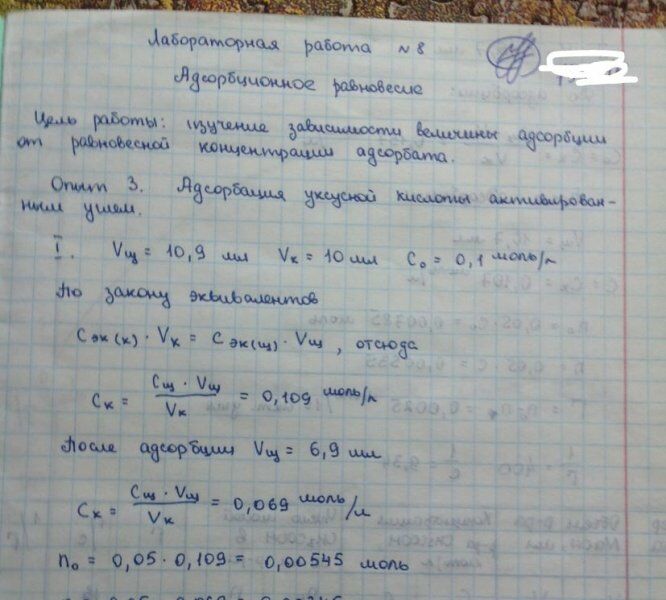 Лабораторная работа №8
Адсорбционное равновесие
Цель работы: изучение зависимости величины адсорбции
от равновесной концентрации адсорбата.
Опыт 3. Адсорбация уксусной кислоты активирован-
ным углем.
I. Vщ = 10,9 мл Vк = 10 мл C₀ = 0,1 моль/л
По закону эквивалентов
Cэк(к) · Vк = Cэк(щ) · Vщ, отсюда
Cк = Cщ · Vщ / Vк = 0,109 моль/л
После адсорбции Vщ = 6,9 мл
Cк = Cщ · Vщ / Vк = 0,069 моль/л
n₀ = 0,05 · 0,109 = 0,00545 моль